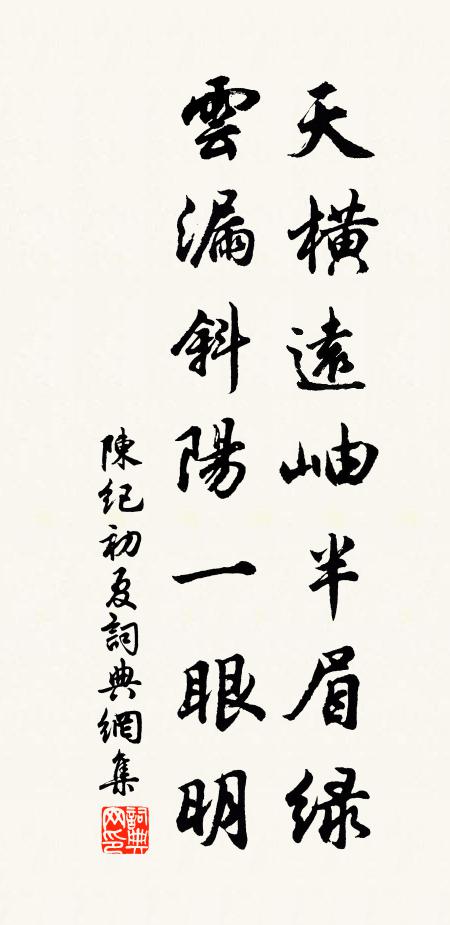 天橫遠岫半眉綠
雲漏斜陽一眼明
陳紀初夏詞典網集
詞典网印